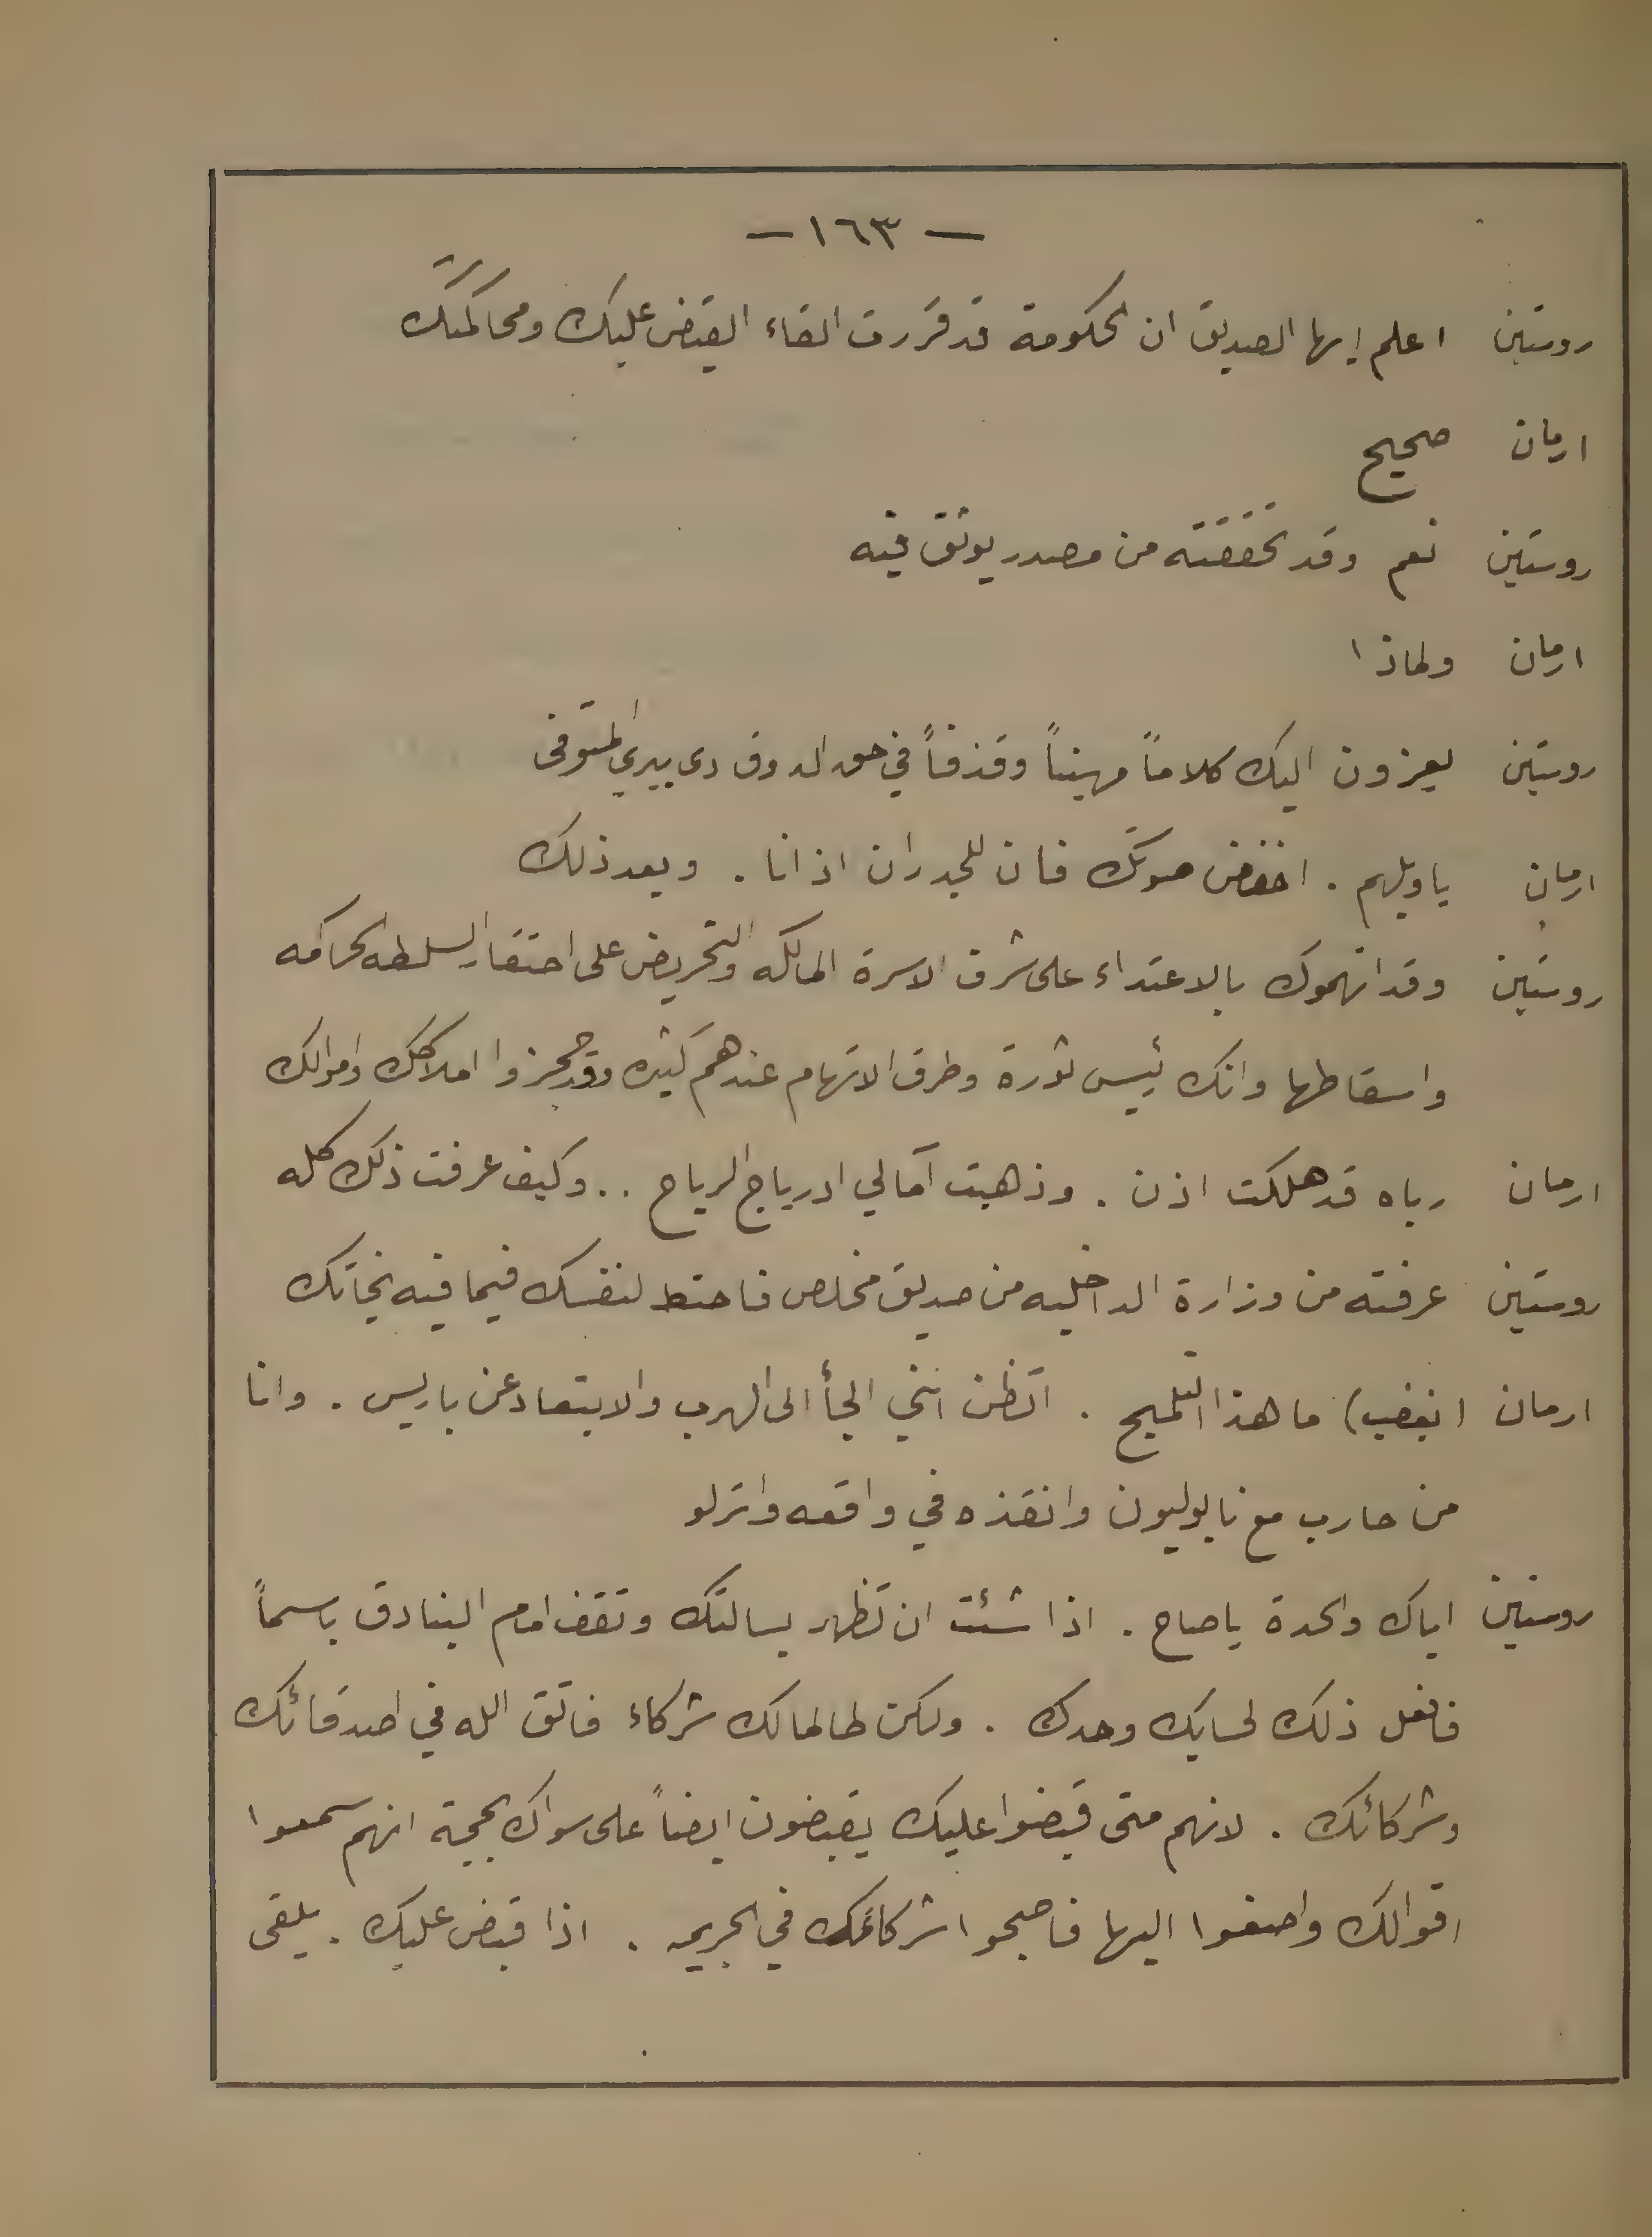 — ١٦٣ —
روستين اعلم ايها الصديق ان الحكومة قد قررت القاء القبض عليك ومحاكمتك
ارمان صحيح
روستين نعم وقد تحققته من مصدر يوثق فيه
ارمان ولماذا
روستين يعزون اليك كلاماً مهيناً وقذفاً في حق الدوق دى بيري المتوفى
ارمان ياويلهم . اخفض صوتك فان للجدران اذانا . وبعد ذلك
روستين وقد اتهموك بالاعتداء على شرف الاسرة المالكه والتحريض على احتقار السلطه الحاكمه
واسقاطها وانك رئيس ثورة وطرق الاتهام عندهم كثيره وقد حجزوا املاكك واموالك
ارمان رباه قد هلكت اذن . وذهبت آمالي ادرياج الرياح .. وكيف عرفت ذلك كله
روستين عرفته من وزارة الداخليه من صديق مخلص فاحتط لنفسك فيما فيه نجاتك
ارمان (بغضب) ما هذا التلميح . اتظن انني الجأ الى الهرب والابتعاد عن باريس . وانا
من حارب مع نابوليون وانقذه في واقعه واترلو
روستين اياك والحدة ياصاح . اذا شئت ان تظهر بسالتك وتقف امام البنادق باسماً
فافعل ذلك لحسابك وحدك . ولكن طالما لك شركاء فاتق الله في اصدقائك
وشركائك . لانهم متى قبضوا عليك يقبضون ايضاً على سواك بحجة انهم سمعوا
اقوالك واصغوا اليها فاصبحوا شركائك في الجريمه . اذا قبض عليك . يلقى